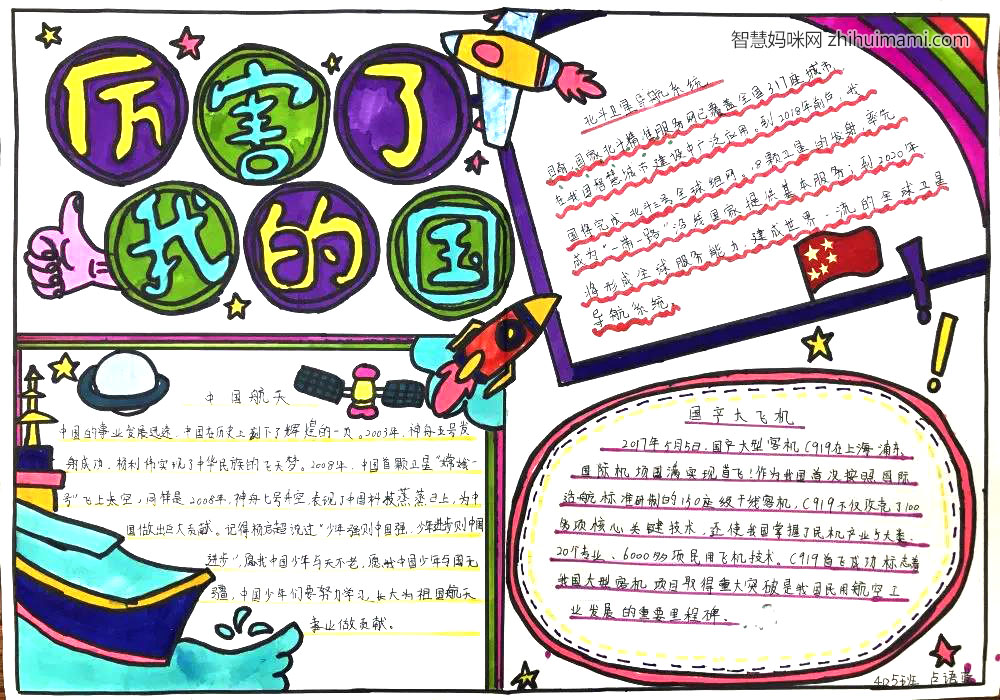 智慧妈咪网 zhihuimami.com
厉害了
我的国
北斗卫星导航系统
目前,国家北斗精准服务网已覆盖全国317座城市
在我国智慧城市建设中广泛应用。到2018年前后,我
国保完成北斗三号全球组网。18颗卫星的发射率先
成为“一带一路”沿线国家提供基本服务;到2020年
将形成全球服务能力,建成世界一流的全球卫星
导航系统。
中国航天
中国的事业发展迅速,中国在历史上刻下了辉煌的一页。2003年,神舟五号发
射成功,杨利伟实现了中华民族的飞天梦。2008年,中国首颗卫星“嫦娥一
号”飞上太空,同样是2008年,神舟七号升空,表现了中国科技蒸蒸日上,为中
国做出巨大贡献。记得梁启超说过“少年强则中国强,少年进步则中国
进步”,愿我中国少年与天不老,愿我中国少年与国无
疆,中国少年们要努力学习,长大为祖国航天
事业做贡献。
国产大飞机
2017年5月5日,国产大型客机C919在上海浦东
国际机场圆满实现首飞!作为我国首次按照国际
适航标准研制的160座级干线客机,C919不仅攻克了100
多项核心关键技术,还使我国掌握了民机产业5大类、
20个专业、6000多项民用飞机技术。C919首飞成功标志着
我国大型客机项目取得重大突破是我国民用航空工
业发展的重要里程碑。
405班